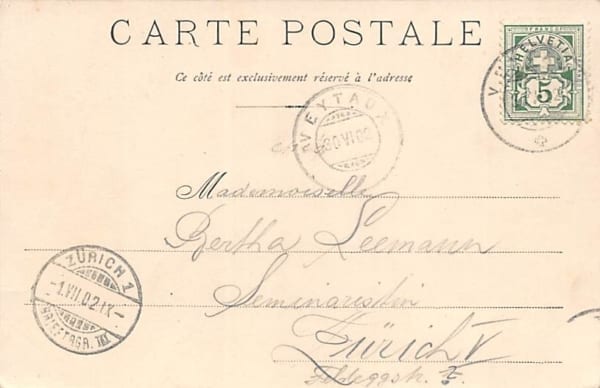 CARTE POSTALE
Ce côté est exclusivement réservé à l'adresse
HELVETIA
FRANCO
5
V
VEYTAUX
30 VI 02
Mademoiselle
Bertha Leemann
Seminaristin
Zürich V
Feldeggstr.
ZÜRICH 1
-1.VII.02.IX-
BRIEFTRGR. III